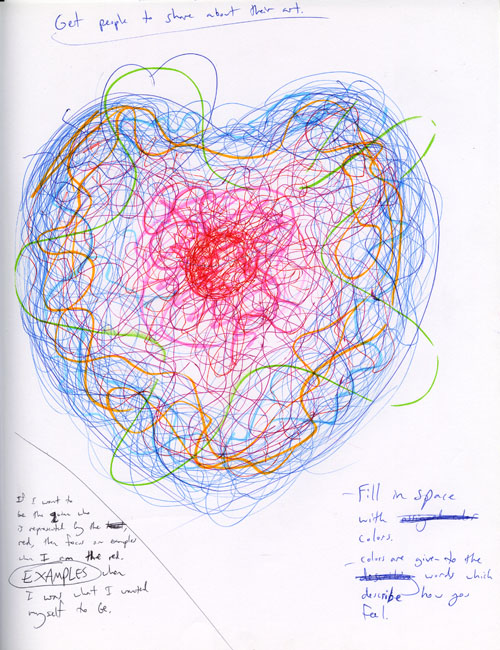 Get people to share about their art.
If I want to
be the one who
is represented by the
red, then focus on examples
when I am the red.
EXAMPLES when
I was what I wanted
myself to be.
- Fill in space
with
colors.
- colors are given to the
words which
describe how you
feel.